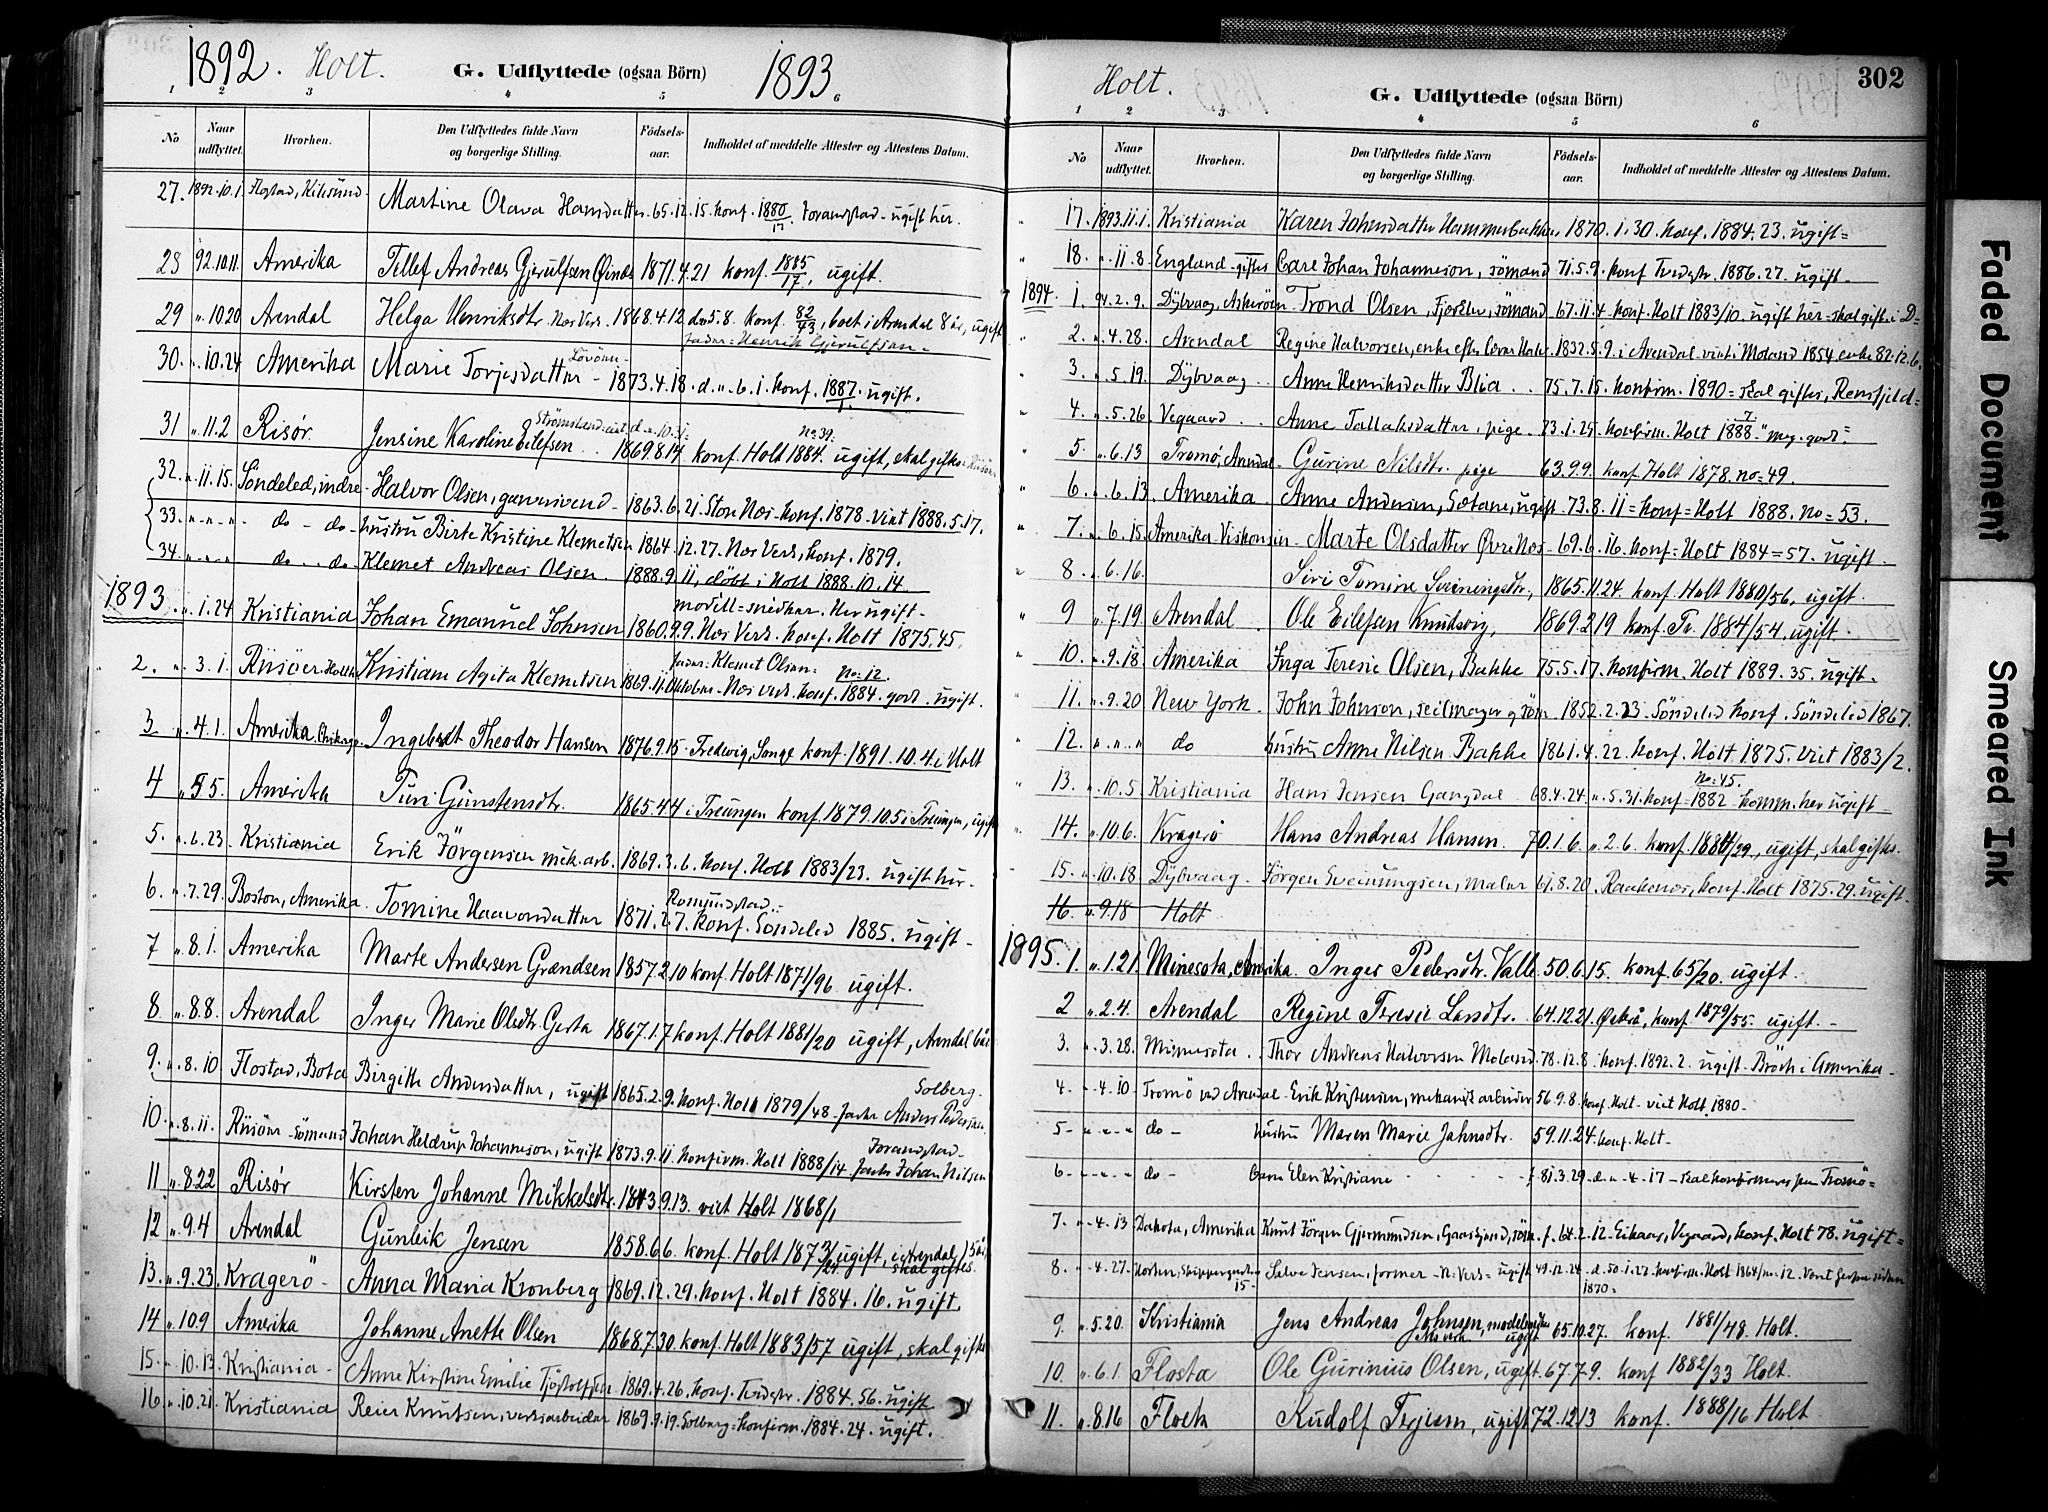 1892. Holt. G. Udflyttede (ogsaa Börn) 1893.
1 2 3 4 5 6
No Naar udflyttet. Hvorhen. Den Udflyttedes fulde Navn og borgerlige Stilling. Födsels-aar. Indholdet af meddelte Attester og Attestens Datum.
27. 1892.10.1. Flostad, Kilesund Martine Olava Hansdatter 65.12.15. konf. 1880/17 ugift her.
28 92.10.11. Amerika Tellef Andreas Gjerulfsen Øinæs 1871.4.21 konf. 1885/17, ugift.
29 „ 10.20 Arendal Helga Henriksdtr. Næs Verk. 1868.4.12 d. 5.8. konf. 82/43, boet i Arendal 8 år, ugift
fader: Henrik Gjerulfsen
30. „ 10.24 Amerika Marie Torjesdatter 1873.4.18. d. „ 6.1. konf. 1887/1. ugift.
31 „ 11.2 Risør. Jensine Karoline Eilefsen 1869.8.14 konf. Holt 1884. no 39. ugift, skal giftes i Risør
32. „ 11.15. Söndeled, indre Halvor Olsen, 1863.6.21. Store Næs konf. 1878 viet 1888.5.17.
33. „ „ „ do do hustru Birte Kristine Klemetsen 1864.12.27. Næs Verk, konf. 1879.
34. „ „ „ do do Klemet Andreas Olsen 1888.9.11, döbt i Holt 1888.10.14.
1893. „ 1.24 Kristiania Johan Emanuel Johnsen 1860.9.9. Næs Verk. konf. Holt 1875.45.
modell=snedker. Her ugift.
2. „ 3.1. Risöer Kristiane Agita Klemetsen 1869.11. Oktober Næs verk. konf. 1884. no 12. god. ugift.
fader: Klemet Olsen
3 „ 4.1. Amerika, Chikago Ingebredt Theodor Hansen 1876.9.15 Fredewig, Songe konf. 1891.10.4 i Holt
4 „ 5.5. Amerika Turi Gunstensdtr. 1865.4.4 i Treungen konf. 1879.10.5 i Treungen, ugift
5. „ 6.23 Kristiania Erik Jörgensen mek. arb. 1869.3.6. konf. Holt 1883/23. ugift her.
6. „ 7.29. Boston, Amerika Tomine Haavorsdatter 1871.2.7. konf. Söndeled 1885. ugift
7 „ 8.1. Amerika Marte Andersen Grændsen 1857.2.10 konf. Holt 1871/96 ugift.
8 „ 8.8. Arendal Inger Marie Olsdtr. Gerta 1867.1.7 konf. Holt 1881/20 ugift, Arendal
9. „ 8.10 Flostad, Bota Birgitte Andersdatter, ugift 1865.2.9. konf. Holt 1879/48 fader Anders Pedersen Solberg.
10. „ 8.11. Risöer Sömand Johan Heldrup Johannesson, ugift 1873.9.11 konfirm. Holt 1888/14 fader Johan Nilsen
11 „ 8.22 Risør Kirsten Johanne Mikkelsdtr. 1843.9.13. viet Holt 1868/1
12 „ 9.4 Arendal Gunleik Jensen 1858.6.6. konf. Holt 1873/24 ugift, i Arendal 5 år, skal giftes
13. „ 9.23. Kragerö Anna Maria Kronberg 1869.12.29. konf. Holt 1884.16. ugift.
14 „ 10.9 Amerika Johanne Anette Olsen 1868.7.30. konf. Holt 1883/57 ugift, skal giftes
15. „ 10.13. Kristiania Anne Kirstine Emilie 1869.4.26. konf. Tvedestr. 1884.56. ugift
16 „ 10.21 Kristiania Reier Knutsen, verksarbeider 1869.9.19. Solberg konfirm. 1884.24. ugift.
Holt. G. Udflyttede (ogsaa Börn) 302
1 2 3 4 5 6
No Naar udflyttet. Hvorhen. Den Udflyttedes fulde Navn og borgerlige Stilling. Födsels-aar. Indholdet af meddelte Attester og Attestens Datum.
17. 1893.11.1. Kristiania Karen Johnsdatter Hammerbakken 1870.1.30. konf. 1884.23. ugift
18. „ 11.8. England giftes Carl Johan Johanneson, sömand 71.5.9. konf Tvedestr. 1886.27. ugift.
1894. 1. 94.2.9. Dybvaag, Askerøen Trond Olsen, Fjorden, sömand 67.11.4 konf. Holt 1883/10. ugift her skal gift. i D
2. „ 4.28. Arendal Regine Halvorsen, enke efter 1832.5.9. i Arendal viet i Moland 1854 enke 82.12.6.
3. „ 5.19. Dybvaag Anne Henriksdatter Blia 75.7.15. konfirm. 1890 skal giftes,
4. „ 5.26. Vegaard Anne Tallaksdatter, pige 73.1.25. konfirm. Holt 1888. 7. "meg. godt"
5. „ 6.13 Tromö, Arendal Gurine Nilsdtr. pige 63.9.9. konf. Holt 1878. no 49.
6. „ 6.13. Amerika Anne Andersen, ugift 73.8.11 konf Holt 1888. no 53.
7. „ 6.15. Amerika Viskonsin Marte Olsdatter Øvre Næs 69.6.16. konf. Holt 1884 57. ugift.
8 „ 6.16. Siri Tomine 1865.11.24. konf. Holt 1880/56. ugift.
9 „ 7.19 Arendal Ole Eilefsen Knudsvig, 1869.2.19 konf. Tv. 1884/54. ugift.
10. „ 9.18. Amerika Inga Teresie Olsen, Bakke 75.5.17. konfirm. Holt 1889.35. ugift.
11. „ 9.20 New York John Johnson, seilmager 1852.2.23. Söndeled konf. Söndeled 1867.
12. „ „ „ do hustru Anne Nilsen Bakke 1861.4.22. konf. Holt 1875. viet 1883/2.
13. „ 10.5 Kristiania Hans Jensen Gangdal 68.4.24. „ 5.31. konf. 1882 no: 45. komm. her ugift
14. „ 10.6. Kragerö Hans Andreas Hansen. 70.1.6. „ 2.6. konf. 1884/29, ugift, skal giftes.
15. „ 10.18. Dybvaag. Jörgen Sveinungsen, maler 61.8.20. konf. Holt 1875.29. ugift.
16. „ 9.18 Holt
1895. 1. „ 1.21. Minesota, Amerika. Inger Pedersdtr. Valle 50.6.15. konf. 65/20. ugift.
2 „ 2.4. Arendal Regine Teresie Larsdtr. 64.12.21. konf. 1879/55. ugift.
3. „ 3.28. Minnesota Thor Andreas Halvorsen Moland 78.12.8. konf. 1892.2. ugift i Amerika
4. „ 4.10 Tromö ved Arendal Erik Kristensen, mekanisk arbeider 56.9.8. konf. Holt viet Holt 1880
5 „ „ „ do hustru Maren Marie Jahnsdtr. 59.11.24. konf. Holt
6 „ „ „ do Barn Elen Kristiane f. 81.3.29 d. „ 4.17 skal konfirmeres paa Tromö
7. „ 4.13 Dakota, Amerika Knut Jörgen Gjermundsen, f. 64.2.12. Vegaard, konf. Holt 78. ugift
8. „ 4.27. Horten, 15. Salve Jensen, former N. Verk ugift 49.12.24 d. 50.1.27. konfirm. Holt 1864/no. 12. 1870
9. „ 5.20. Kristiania Jens Andreas Johnsen, Næs verk. ugift 65.10.27. konf. 1881/48. Holt.
10. „ 6.1. Flosta Ole Gurinius Olsen, ugift 67.7.9. konf 1882/33 Holt.
11. „ 8.16 Flosta Rudolf Terjesen, ugift 72.12.13 konf. 1888/16 Holt
Faded Document
Smeared Ink